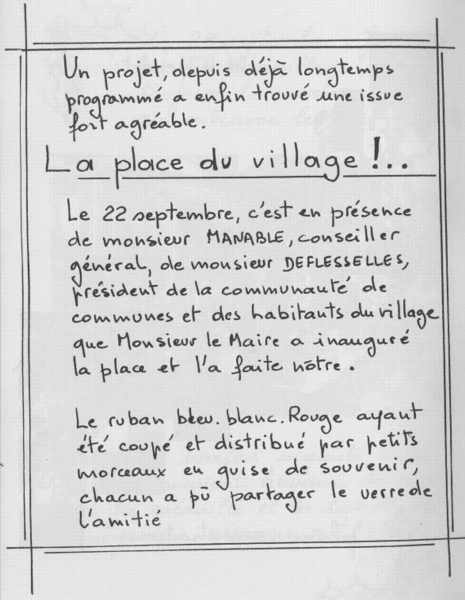 Un projet, depuis déjà longtemps
programmé a enfin trouvé une issue
fort agréable.
La place du village !..
Le 22 septembre, c'est en présence
de monsieur MANABLE, conseiller
général, de monsieur DEFLESSELLES,
président de la communauté de
communes et des habitants du village
que Monsieur le Maire a inauguré
la place et l'a faite nôtre.
Le ruban bleu. blanc. Rouge ayant
été coupé et distribué par petits
morceaux en guise de souvenir,
chacun a pû partager le verre de
l'amitié